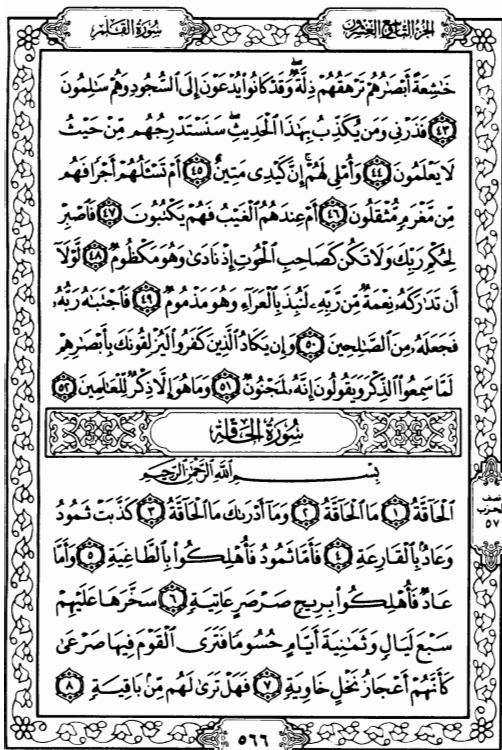 الجزء التاسع والعشرون
سُورَةُ القَلَمِ
خَٰشِعَةً أَبۡصَٰرُهُمۡ تَرۡهَقُهُمۡ ذِلَّةٞۖ وَقَدۡ كَانُواْ يُدۡعَوۡنَ إِلَى ٱلسُّجُودِ وَهُمۡ سَٰلِمُونَ
٤٣ فَذَرۡنِي وَمَن يُكَذِّبُ بِهَٰذَا ٱلۡحَدِيثِۖ سَنَسۡتَدۡرِجُهُم مِّنۡ حَيۡثُ
لَا يَعۡلَمُونَ ٤٤ وَأُمۡلِي لَهُمۡۚ إِنَّ كَيۡدِي مَتِينٌ ٤٥ أَمۡ تَسۡـَٔلُهُمۡ أَجۡرٗا فَهُم
مِّن مَّغۡرَمٖ مُّثۡقَلُونَ ٤٦ أَمۡ عِندَهُمُ ٱلۡغَيۡبُ فَهُمۡ يَكۡتُبُونَ ٤٧ فَٱصۡبِرۡ
لِحُكۡمِ رَبِّكَ وَلَا تَكُن كَصَاحِبِ ٱلۡحُوتِ إِذۡ نَادَىٰ وَهُوَ مَكۡظُومٞ ٤٨ لَّوۡلَآ
أَن تَدَٰرَكَهُۥ نِعۡمَةٞ مِّن رَّبِّهِۦ لَنُبِذَ بِٱلۡعَرَآءِ وَهُوَ مَذۡمُومٞ ٤٩ فَٱجۡتَبَٰهُ رَبُّهُۥ
فَجَعَلَهُۥ مِنَ ٱلصَّٰلِحِينَ ٥٠ وَإِن يَكَادُ ٱلَّذِينَ كَفَرُواْ لَيُزۡلِقُونَكَ بِأَبۡصَٰرِهِمۡ
لَمَّا سَمِعُواْ ٱلذِّكۡرَ وَيَقُولُونَ إِنَّهُۥ لَمَجۡنُونٞ ٥١ وَمَا هُوَ إِلَّا ذِكۡرٞ لِّلۡعَٰلَمِينَ ٥٢
سُورَةُ الحَاقَّةِ
بِسۡمِ ٱللَّهِ ٱلرَّحۡمَٰنِ ٱلرَّحِيمِ
ٱلۡحَآقَّةُ ١ مَا ٱلۡحَآقَّةُ ٢ وَمَآ أَدۡرَىٰكَ مَا ٱلۡحَآقَّةُ ٣ كَذَّبَتۡ ثَمُودُ
وَعَادُۢ بِٱلۡقَارِعَةِ ٤ فَأَمَّا ثَمُودُ فَأُهۡلِكُواْ بِٱلطَّاغِيَةِ ٥ وَأَمَّا
عَادٞ فَأُهۡلِكُواْ بِرِيحٖ صَرۡصَرٍ عَاتِيَةٖ ٦ سَخَّرَهَا عَلَيۡهِمۡ
سَبۡعَ لَيَالٖ وَثَمَٰنِيَةَ أَيَّامٍ حُسُومٗا فَتَرَى ٱلۡقَوۡمَ فِيهَا صَرۡعَىٰ
كَأَنَّهُمۡ أَعۡجَازُ نَخۡلٍ خَاوِيَةٖ ٧ فَهَلۡ تَرَىٰ لَهُم مِّنۢ بَاقِيَةٖ ٨
نصف
الحزب
٥٧
٥٦٦